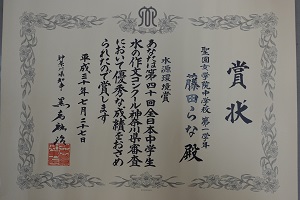 賞状
聖園女学院中学校 第一学年
藤田らな 殿
水源環境賞
あなたは第四十回全日本中学生
水の作文コンクール神奈川県審査
において優秀な成績をおさめ
られたので賞します
平成三十年七月二十七日
神奈川県知事 黒岩祐治